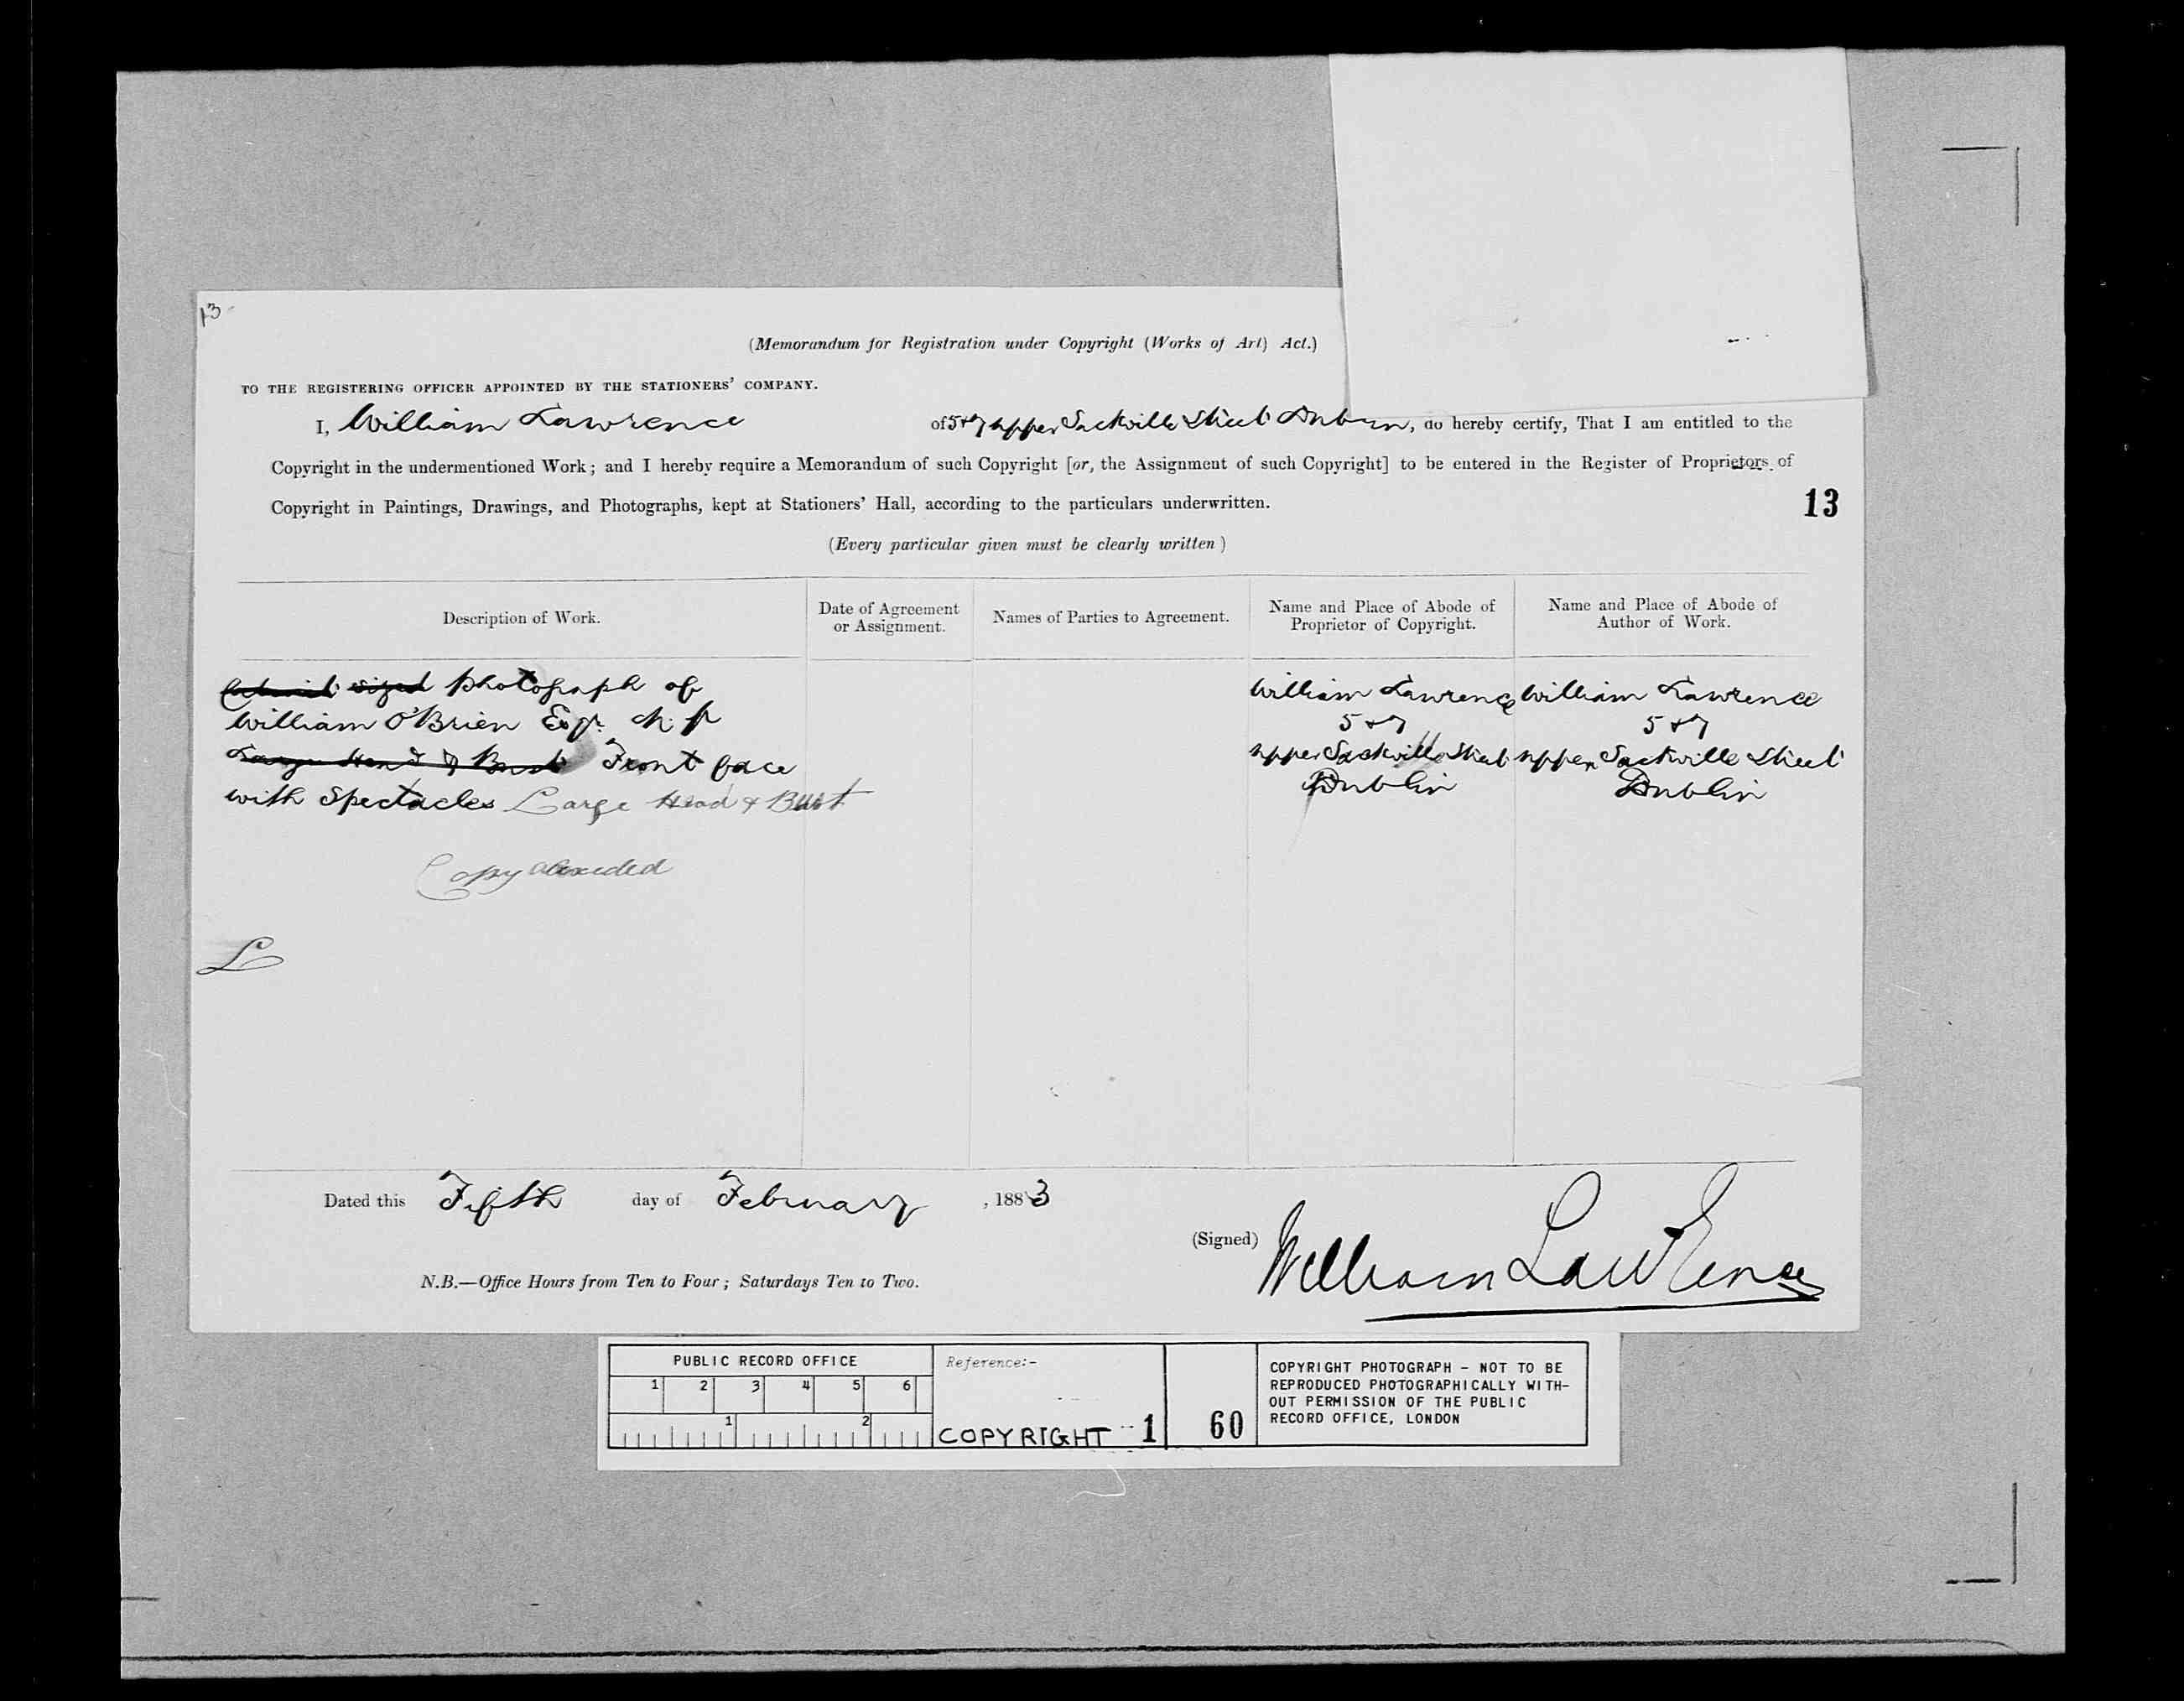 13
(Memorandum for Registration under Copyright (Works of Art) Act.)
TO THE REGISTERING OFFICER APPOINTED BY THE STATIONERS' COMPANY.
I, William Lawrence of 5 & 7 upper Sackville Street Dublin, do hereby certify, That I am entitled to the
Copyright in the undermentioned Work; and I hereby require a Memorandum of such Copyright [or, the Assignment of such Copyright] to be entered in the Register of Proprietors of
Copyright in Paintings, Drawings, and Photographs, kept at Stationers' Hall, according to the particulars underwritten.
13
(Every particular given must be clearly written)
Description of Work.
Date of Agreement
or Assignment.
Names of Parties to Agreement.
Name and Place of Abode of
Proprietor of Copyright.
Name and Place of Abode of
Author of Work.
Cabinet sized photograph of
William O'Brien Esqr. M.P
Large Head & Bust Front face
with Spectacles Large Head & Bust
Copy annexed
L
William Lawrence
5 & 7
upper Sackville Street
Dublin
William Lawrence
5 & 7
upper Sackville Street
Dublin
Dated this Fifth day of February, 1883
(Signed) William Lawrence
N.B.—Office Hours from Ten to Four; Saturdays Ten to Two.
PUBLIC RECORD OFFICE
1 2 3 4 5 6
1 2
Reference:-
COPYRIGHT 1
60
COPYRIGHT PHOTOGRAPH - NOT TO BE
REPRODUCED PHOTOGRAPHICALLY WITH-
OUT PERMISSION OF THE PUBLIC
RECORD OFFICE, LONDON